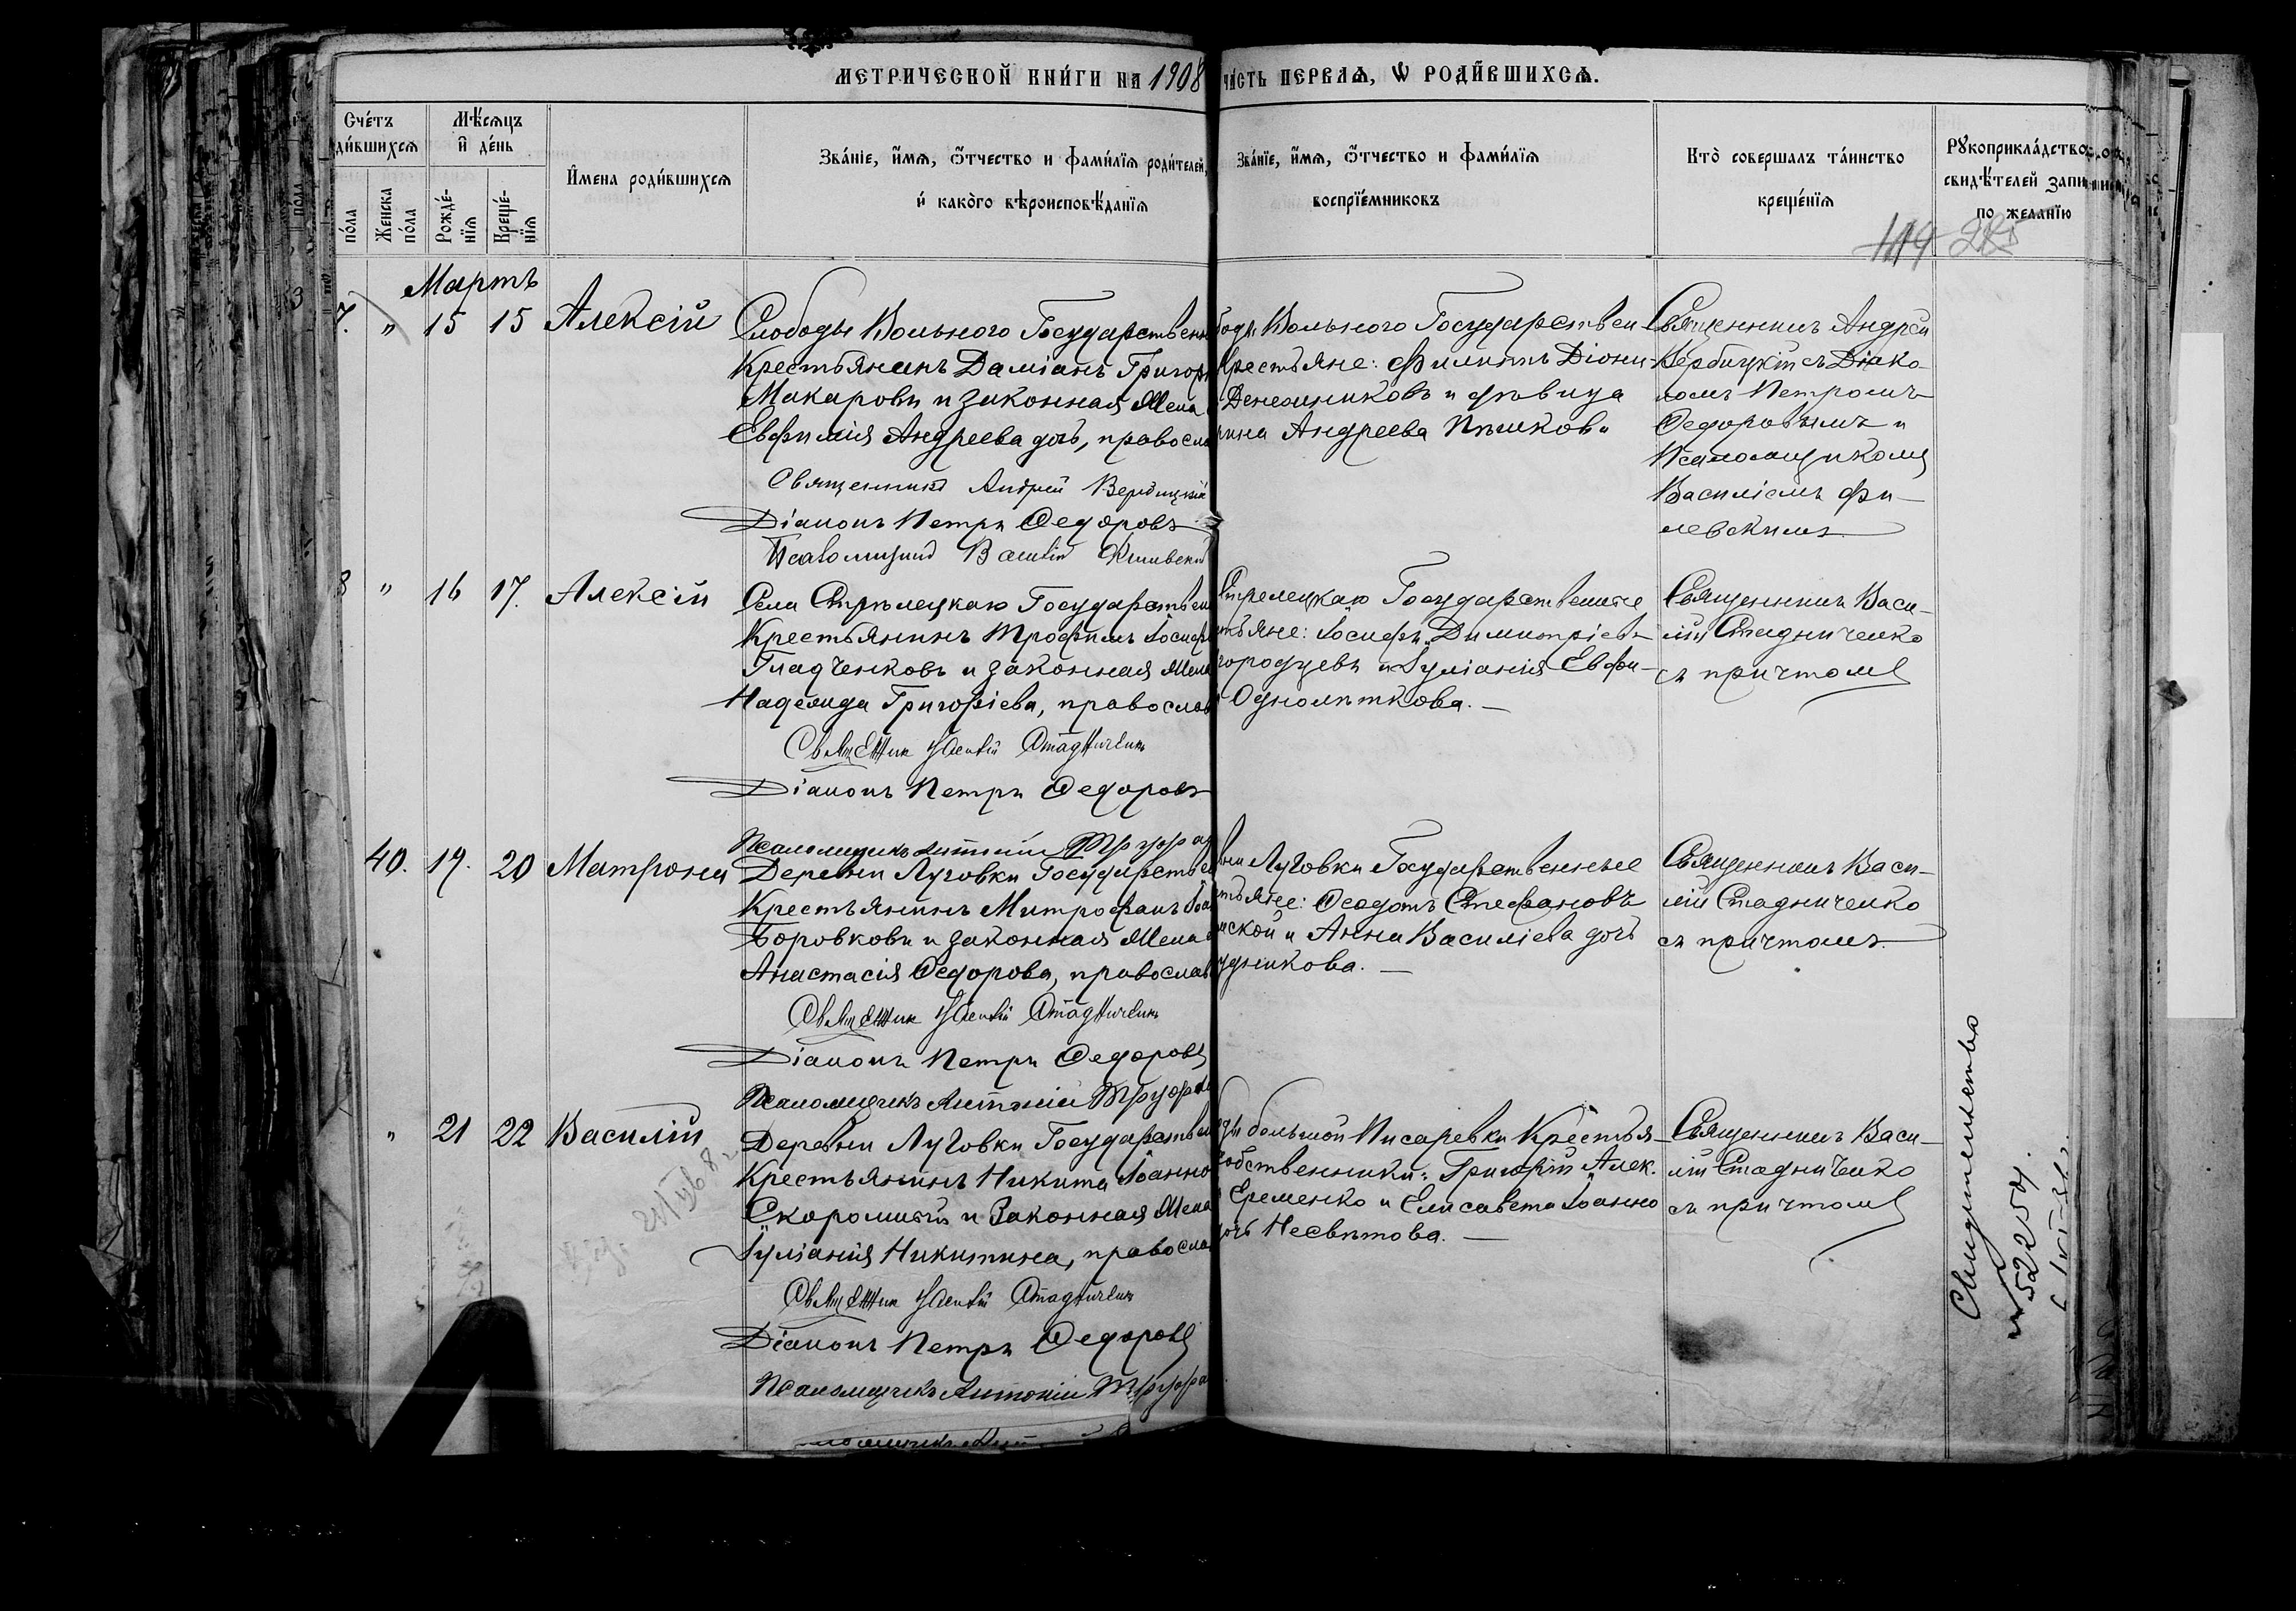 МЕТРИЧЕСКОЙ КНИ́ГИ НА 1908 ЧА́СТЬ ПЕРВАѦ, Ѡ РОДИ́ВШИХСѦ.
Сче́тъ
ди́вшихсѧ
Мѣ́сѧцъ
и҆ де́нь
по́ла
Же́нска
по́ла
Рожде́-
нїѧ
Креще́-
нїѧ
И҆мена роди́вшихсѧ
Зва́нїе, и҆́мѧ, ѻ҆́тчество и фами́лїѧ роди́телей,
и҆ како́го вѣроисповѣ́данїѧ
Зва́нїе, и҆́мѧ, ѻ҆́тчество и фами́лїѧ
воспрїе́мниковъ
Кто̀ соверша́лъ та́инство
креще́нїѧ
Рꙋкоприкла́дство
свидѣ́телей запи
по жела́нїю
119
Мартъ
7. " 15 15 Алексій
Слободы Вольного Государствен
Крестьянинъ Даміанъ Григор
Макаровъ и законная жена
Евфимія Андреева дочь, правосла
Священникъ Андрей Вербицкій
Діаконъ Петръ Федоровъ
Псаломщикъ Василій Филевскій
боды Вольного Государствен
Крестьяне: Филиппъ Діони-
Денежниковъ и дѣвица
рина Андреева Пѣшкова
Священникъ Андрей
Вербицкій съ Діако-
номъ Петромъ
Федоровымъ и
Псаломщикомъ
Василіемъ Фи-
левскимъ
8 " 16 17. Алексій
Села Стрѣлецкаго Государствен
Крестьянинъ Трофимъ Іосиф
Гладченковъ и законная жена
Надежда Григоріева, православ
Священник Василій Стадниченко
Діаконъ Петръ Федоровъ
Псаломщикъ Антоній
Стрелецкаго Государственные
тьяне: Іосифъ Димитріевъ
городцевъ и Іуліанія Евфи-
Однолѣткова. —
Священникъ Васи-
лій Стадниченко
съ причтомъ
40. 19. 20 Матрона
Деревни Луговки Государствен
Крестьянинъ Митрофанъ Іоа
Боровковъ и законная жена
Анастасія Федорова, православ
Священник Василій Стадниченко
Діаконъ Петръ Федоровъ
Псаломщикъ Антоній
вни Луговки Государственные
тьяне: Феодотъ Стефановъ
нской и Анна Василіева дочь
удникова. —
Священникъ Васи-
лій Стадниченко
съ причтомъ.
" 21 22 Василій
Деревни Луговки Государствен
Крестьянинъ Никита Іоанно
Скоромный и Законная Жена
Іуліанія Никитина, правосла
Священник Василій Стадниченко
Діаконъ Петръ Федоровъ
Псаломщикъ Антоній
ды большой Писаревки Крестья-
собственники: Григорій Алек.
Еременко и Елисавета Іоанно
дочь Несвѣтова. —
Священникъ Васи-
лій Стадниченко
съ причтомъ
Свидетельство
№ 522 54.